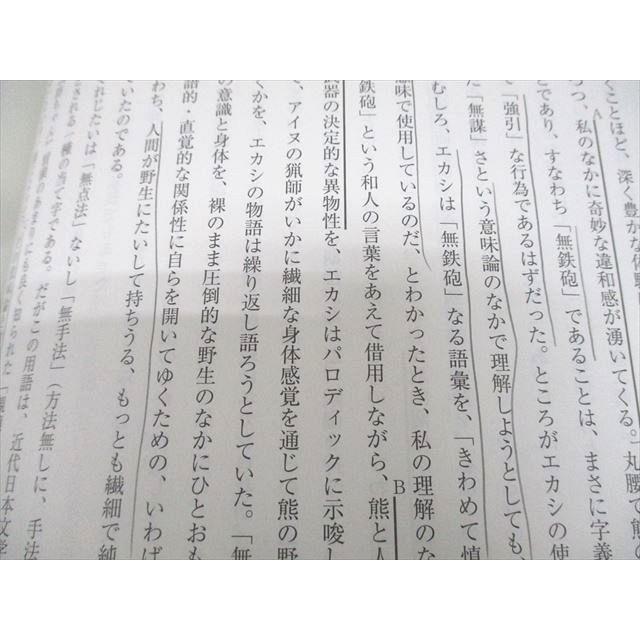 くことほど、深く豊かな体験
つつ、私のなかに奇妙な違和感が湧いてくる。丸腰で熊の
A
であり、すなわち「無鉄砲」であることは、まさに字義
「強引」な行為であるはずだった。ところがエカシの使
た「無謀」さという意味論のなかで理解しようとしても、
むしろ、エカシは「無鉄砲」なる語彙を、「きわめて慎
意味で使用しているのだ、とわかったとき、私の理解のな
B
鉄砲」という和人の言葉をあえて借用しながら、熊と人
武器の決定的な異物性を、エカシはパロディックに示唆し
て、アイヌの猟師がいかに繊細な身体感覚を通じて熊の野
くかを、エカシの物語は繰り返し語ろうとしていた。「無
の意識と身体を、裸のまま圧倒的な野生のなかにひとおも
語的・直覚的な関係性に自らを開いてゆくための、いわば
わち、人間が野生にたいして持ちうる、もっとも繊細で純
ていたのである。
それじたいは「無点法」ないし「無手法」(方法無しに、手法
される一種の当て字である。だがこの用語は、近代日本文学